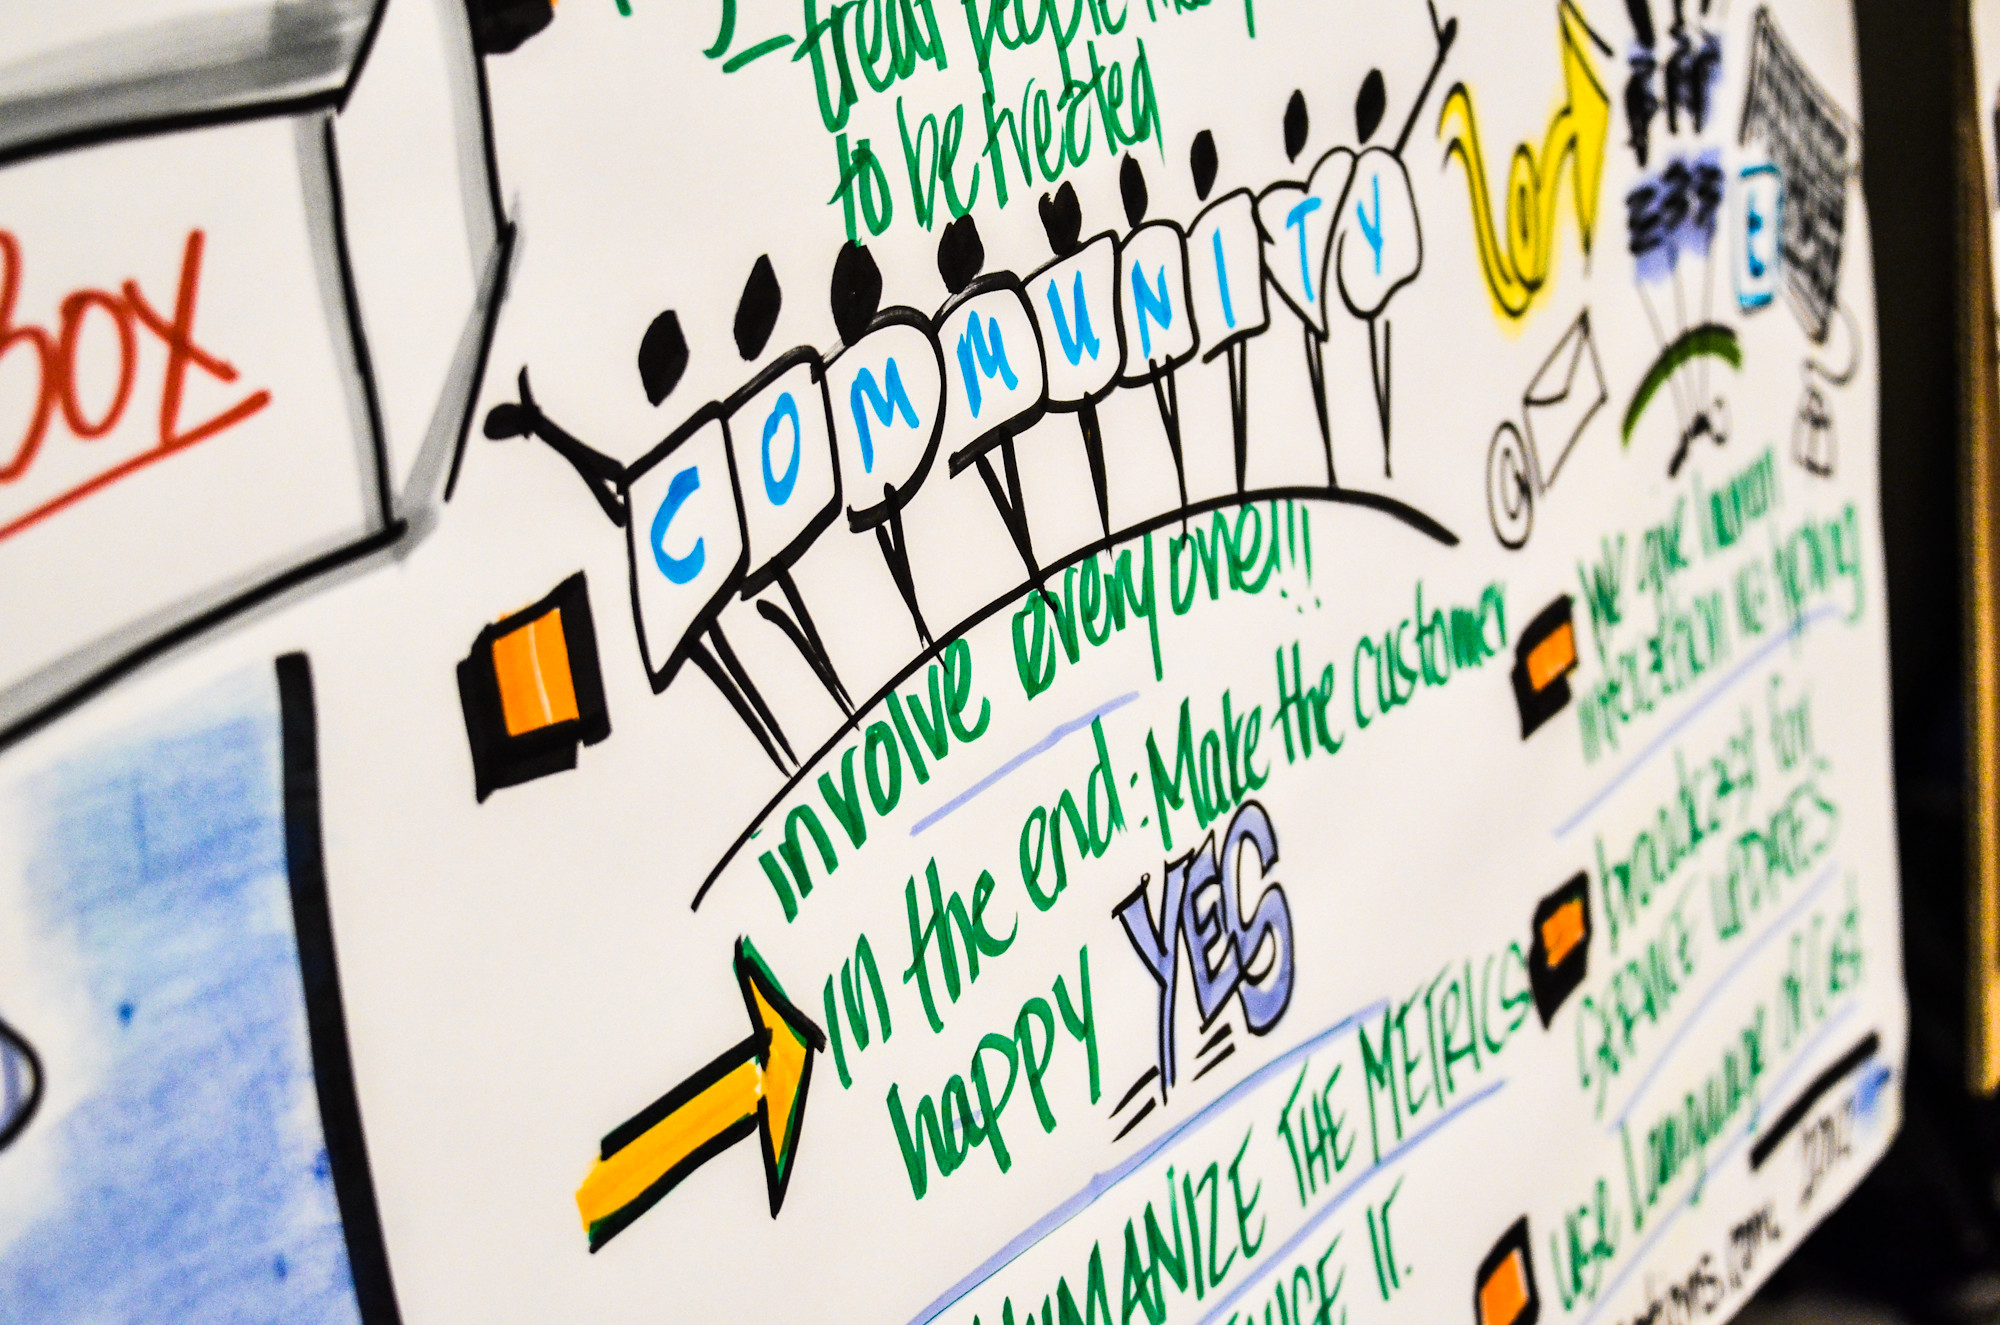 treat people
to be treated
Box
COMMUNITY
involve everyone!!!
in the end: Make the customer
happy YES
HUMANIZE THE METRICS
IT.
@
t
We give human
broadcast for
SERVICE UPDATES
use language of cust
2012